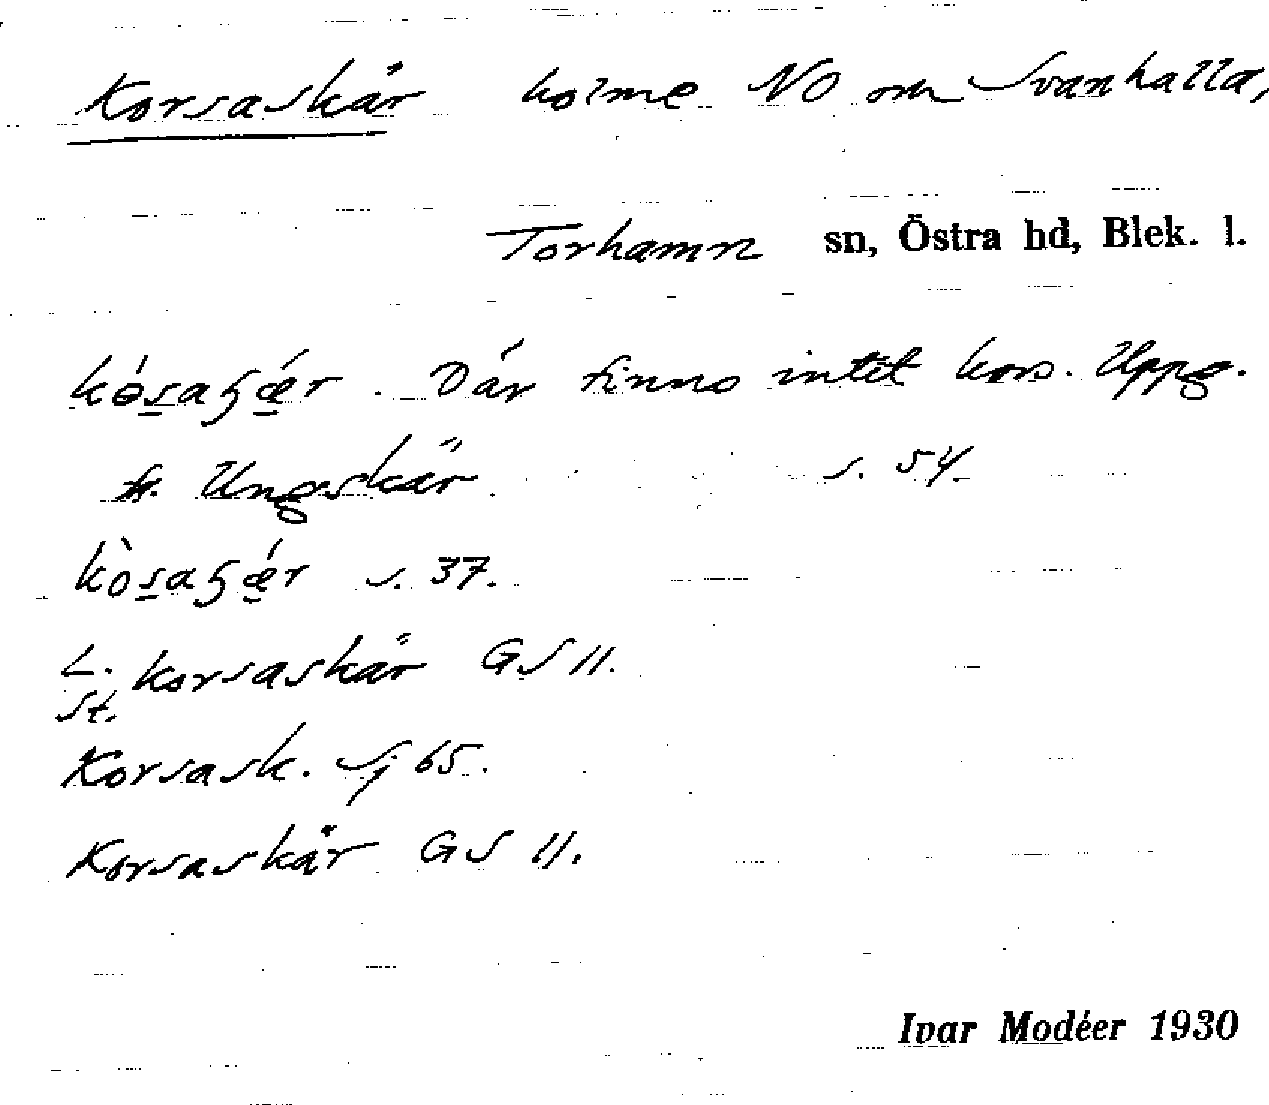 Korsaskär holme NO om Svanhalla,
Torhamn sn, Östra hd, Blek. l.
Där finns intet kors. Uppg.
fr. Ungskär s. 54
s. 37.
L. Korsaskär GS 11.
St.
Korsask. Sj 65.
Korsaskär GS 11.
Ivar Modéer 1930